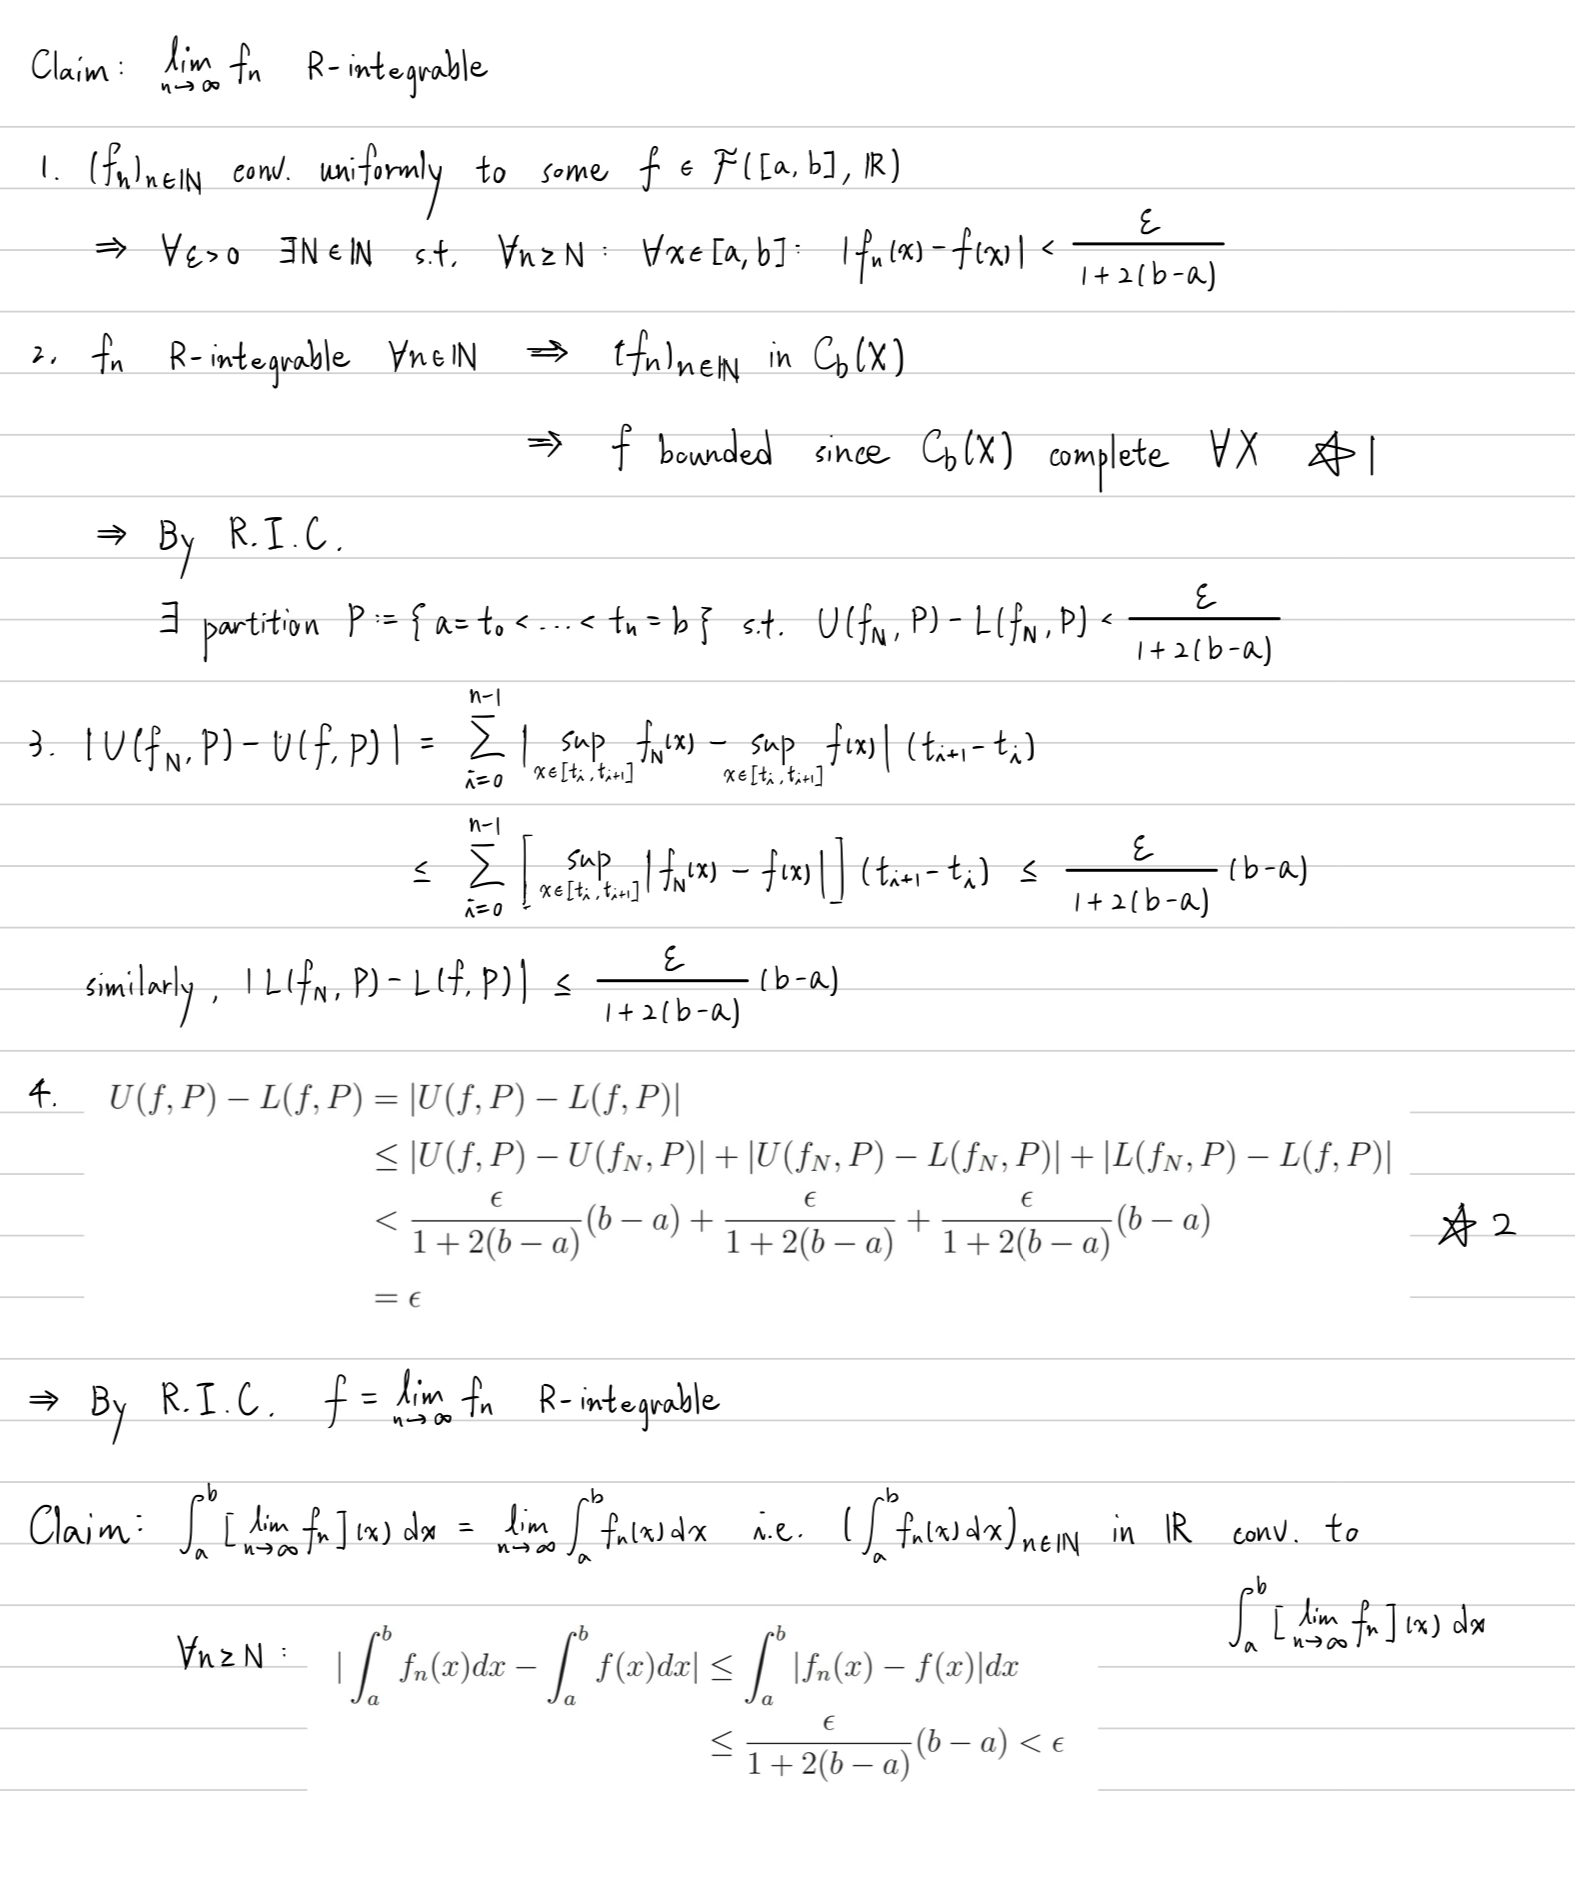 Claim: lim_{n→∞} fn R-integrable
1. (fn)n∈ℕ conv. uniformly to some f ∈ F([a,b], ℝ)
⇒ ∀ε>0 ∃N∈ℕ s.t. ∀n≥N : ∀x∈[a,b] : |fn(x)-f(x)| < ε/(1+2(b-a))
2. fn R-integrable ∀n∈ℕ ⇒ (fn)n∈ℕ in Cb(X)
⇒ f bounded since Cb(X) complete ∀X ☆1
⇒ By R.I.C.
∃ partition P := {a=t₀<...<tn=b} s.t. U(fN, P) - L(fN, P) < ε/(1+2(b-a))
3. |U(fN, P) - U(f, P)| = Σ_{i=0}^{n-1} | sup_{x∈[ti, ti+1]} fN(x) - sup_{x∈[ti, ti+1]} f(x)| (ti+1 - ti)
≤ Σ_{i=0}^{n-1} [ sup_{x∈[ti, ti+1]} |fN(x) - f(x)| ] (ti+1 - ti) ≤ ε/(1+2(b-a)) (b-a)
similarly, |L(fN, P) - L(f, P)| ≤ ε/(1+2(b-a)) (b-a)
4. U(f, P) − L(f, P) = |U(f, P) − L(f, P)|
≤ |U(f, P) − U(fN, P)| + |U(fN, P) − L(fN, P)| + |L(fN, P) − L(f, P)|
< ϵ/(1 + 2(b − a)) (b − a) + ϵ/(1 + 2(b − a)) + ϵ/(1 + 2(b − a)) (b − a) ☆2
= ϵ
⇒ By R.I.C. f = lim_{n→∞} fn R-integrable
Claim: ∫_a^b [lim_{n→∞} fn](x) dx = lim_{n→∞} ∫_a^b fn(x)dx i.e. (∫_a^b fn(x)dx)n∈ℕ in ℝ conv. to
∫_a^b [lim_{n→∞} fn](x) dx
∀n≥N : |∫_a^b fn(x)dx − ∫_a^b f(x)dx| ≤ ∫_a^b |fn(x) − f(x)|dx
≤ ϵ/(1 + 2(b − a)) (b − a) < ϵ